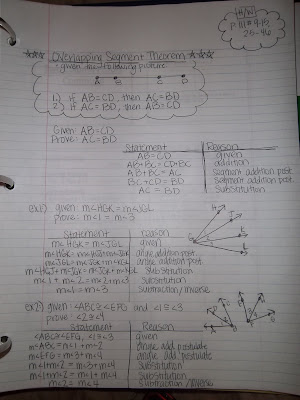 HW
P 111 # 9-15
25-46
Overlapping Segment Theorem
given the following picture
A B C D
1) if AB=CD, then AC=BD
2) if AC=BD, then AB=CD
Given: AB=CD
Prove: AC=BD
Statement Reason
AB=CD given
AB+BC=CD+BC addition
AB+BC=AC segment addition post.
BC+CD=BD segment addition post.
AC=BD substitution
ex1) given: m<HGK=m<JGL
prove: m<1=m<3
Statement Reason
m<HGK=m<JGL given
angle addition post.
angle addition post.
substitution
m<1+m<2=m<2+m<3 substitution
m<1=m<3 subtraction/inverse
ex2) given: <ABC≅<EFG and <1≅<3
prove: <2≅<4
Statement Reason
<ABC≅<EFG, <1≅<3 given
m<ABC=m<1+m<2 angle add postulate
m<EFG=m<3+m<4 angle add postulate
m<1+m<2=m<3+m<4 substitution
m<1+m<2=m<1+m<4 substitution
m<2=m<4 subtraction/inverse